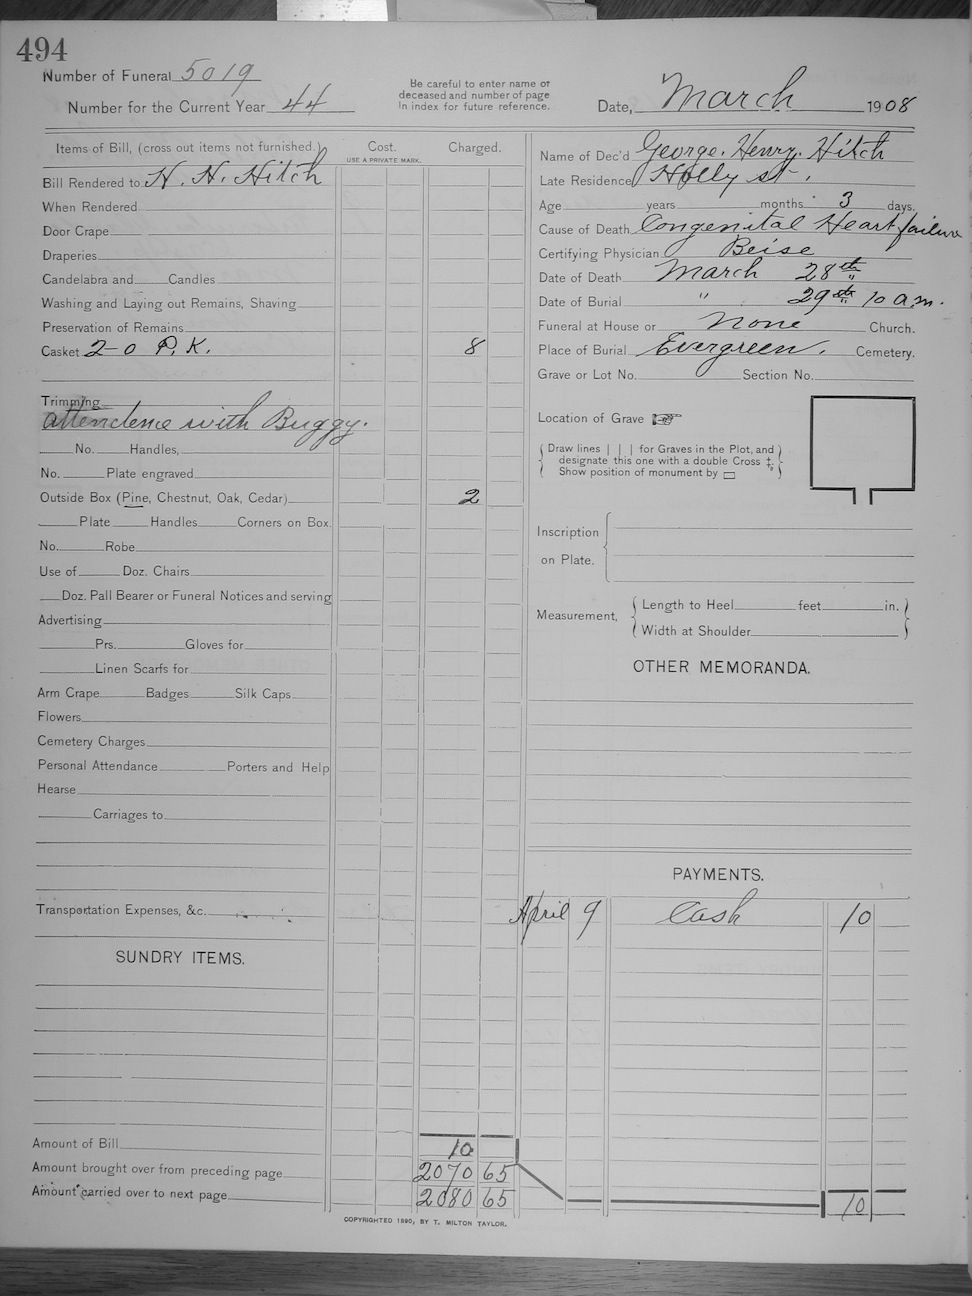 494
Number of Funeral 5019
Number for the Current Year 44
Be careful to enter name of
deceased and number of page
in index for future reference.
Date, March 1908
Items of Bill, (cross out items not furnished.)
Cost.
USE A PRIVATE MARK.
Charged.
Bill Rendered to H. H. Hitch
When Rendered
Door Crape
Draperies
Candelabra and Candles
Washing and Laying out Remains, Shaving
Preservation of Remains
Casket 2-0 P.K. 8
Trimming
attendence with Buggy.
No. Handles,
No. Plate engraved
Outside Box (Pine, Chestnut, Oak, Cedar) 2
Plate Handles Corners on Box.
No. Robe
Use of Doz. Chairs
Doz. Pall Bearer or Funeral Notices and serving
Advertising
Prs. Gloves for
Linen Scarfs for
Arm Crape Badges Silk Caps
Flowers
Cemetery Charges
Personal Attendance Porters and Help
Hearse
Carriages to
Transportation Expenses, &c.
SUNDRY ITEMS.
Amount of Bill 10
Amount brought over from preceding page 2070 65
Amount carried over to next page 2080 65
Name of Dec'd George. Henry. Hitch
Late Residence Holly st.
Age years months 3 days.
Cause of Death Congenital Heart failure
Certifying Physician Beise
Date of Death March 28th
Date of Burial " 29th 10 a.m.
Funeral at House or None Church.
Place of Burial Evergreen. Cemetery.
Grave or Lot No. Section No.
Location of Grave ☞
Draw lines | | | for Graves in the Plot, and
designate this one with a double Cross ‡.
Show position of monument by ▭
Inscription
on Plate.
Measurement,
Length to Heel feet in.
Width at Shoulder
OTHER MEMORANDA.
PAYMENTS.
April 9 Cash 10
10
COPYRIGHTED 1890, BY T. MILTON TAYLOR.